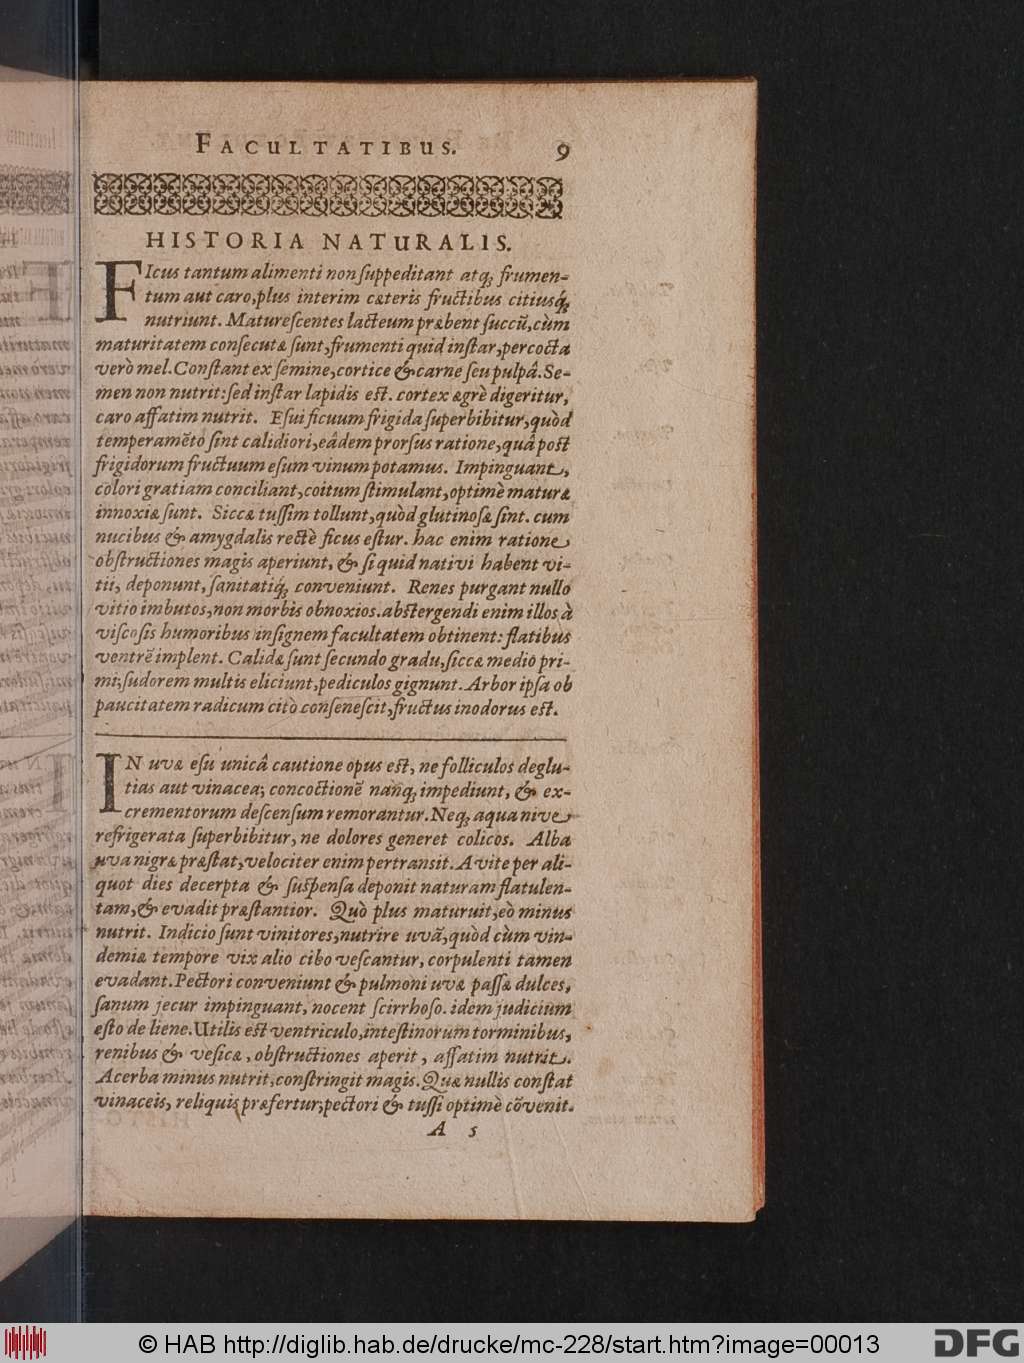 FACULTATIBUS. 9
HISTORIA NATURALIS.
FIcus tantum alimenti non ſuppeditant atq; frumen-
tum aut caro, plus interim cæteris fructibus citiusq́;
nutriunt. Matureſcentes lacteum præbent ſuccũ, cùm
maturitatem conſecutæ ſunt, frumenti quid inſtar, percocta
verò mel. Conſtant ex ſemine, cortice & carne ſeu pulpâ. Se-
men non nutrit: ſed inſtar lapidis eſt. cortex ægrè digeritur,
caro affatim nutrit. Eſui ficuum frigida ſuperbibitur, quòd
temperamẽto ſint calidiori, eâdem prorſus ratione, quâ poſt
frigidorum fructuum eſum vinum potamus. Impinguant,
colori gratiam conciliant, coitum ſtimulant, optimè maturæ
innoxiæ ſunt. Siccæ tuſſim tollunt, quòd glutinoſæ ſint. cum
nucibus & amygdalis rectè ficus eſtur. hac enim ratione
obſtructiones magis aperiunt, & ſi quid nativi habent vi-
tii, deponunt, ſanitatiq́; conveniunt. Renes purgant nullo
vitio imbutos, non morbis obnoxios. abſtergendi enim illos à
viſcoſis humoribus inſignem facultatem obtinent: flatibus
ventrẽ implent. Calidæ ſunt ſecundo gradu, ſiccæ medio pri-
mi; ſudorem multis eliciunt, pediculos gignunt. Arbor ipſa ob
paucitatem radicum citò conſeneſcit, fructus inodorus eſt.
IN uvæ eſu unicâ cautione opus eſt, ne folliculos deglu-
tias aut vinacea; concoctionẽ nanq; impediunt, & ex-
crementorum deſcenſum remorantur. Neq; aqua nive
refrigerata ſuperbibitur, ne dolores generet colicos. Alba
uva nigræ præſtat, velociter enim pertransit. A vite per ali-
quot dies decerpta & ſuſpenſa deponit naturam flatulen-
tam, & evadit præſtantior. Quò plus maturuit, eò minus
nutrit. Indicio ſunt vinitores, nutrire uvã, quòd cùm vin-
demiæ tempore vix alio cibo veſcantur, corpulenti tamen
evadant. Pectori conveniunt & pulmoni uvæ paſſæ dulces,
ſanum jecur impinguant, nocent ſcirrhoſo. idem judicium
eſto de liene. Utilis eſt ventriculo, inteſtinorum torminibus,
renibus & veſicæ, obſtructiones aperit, affatim nutrit.
Acerba minus nutrit, conſtringit magis. Quæ nullis conſtat
vinaceis, reliquis præfertur; pectori & tuſſi optimè cõvenit.
A 5
© HAB http://diglib.hab.de/drucke/mc-228/start.htm?image=00013
DFG